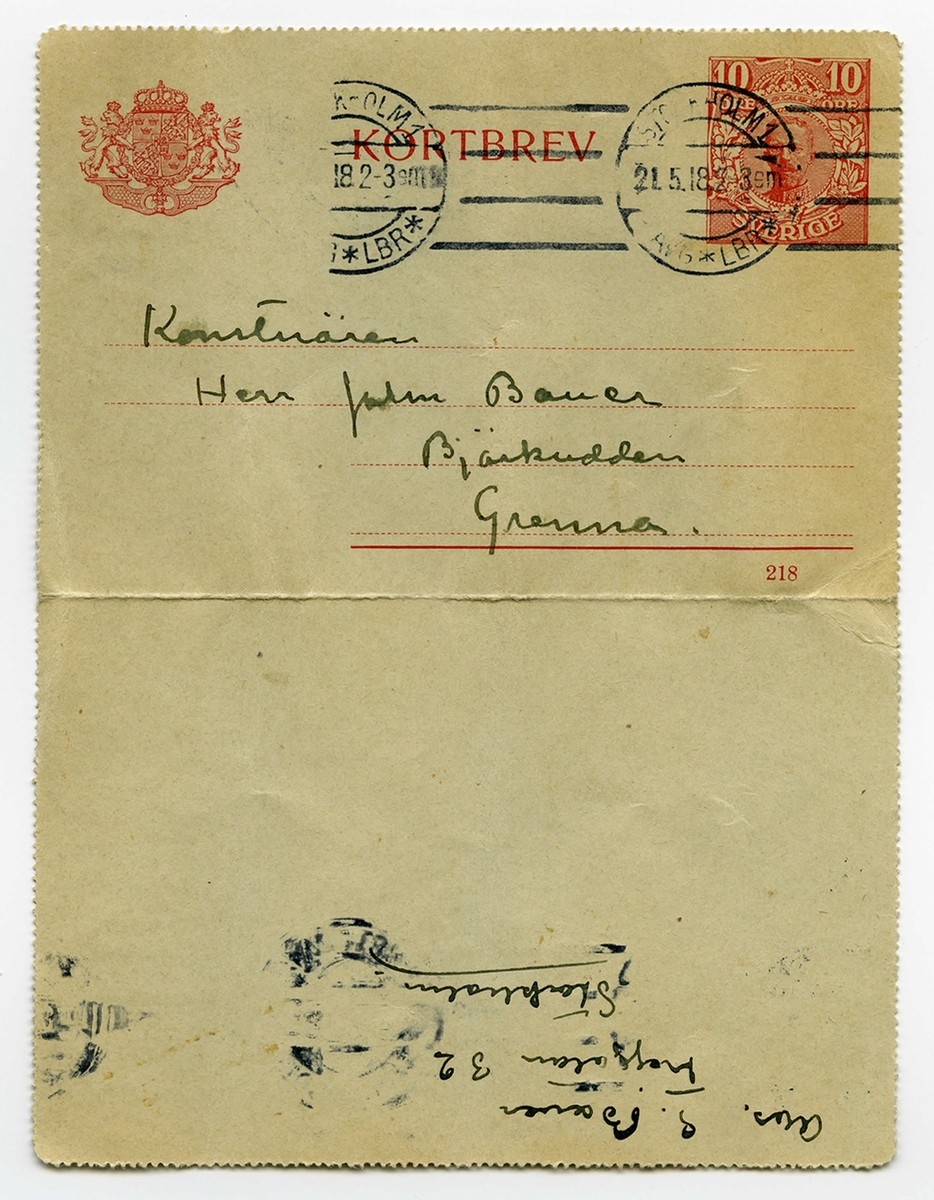 10 10
ÖRE ÖRE
SVERIGE
KORTBREV
KHOLM 1
18.2-3em
LBR
STOCKHOLM 1
21.5.18.2-3em
AVG LBR
Konstnären
Herr John Bauer
Björkudden
Grenna.
218
Avs. E. Bauer
32
Stockholm